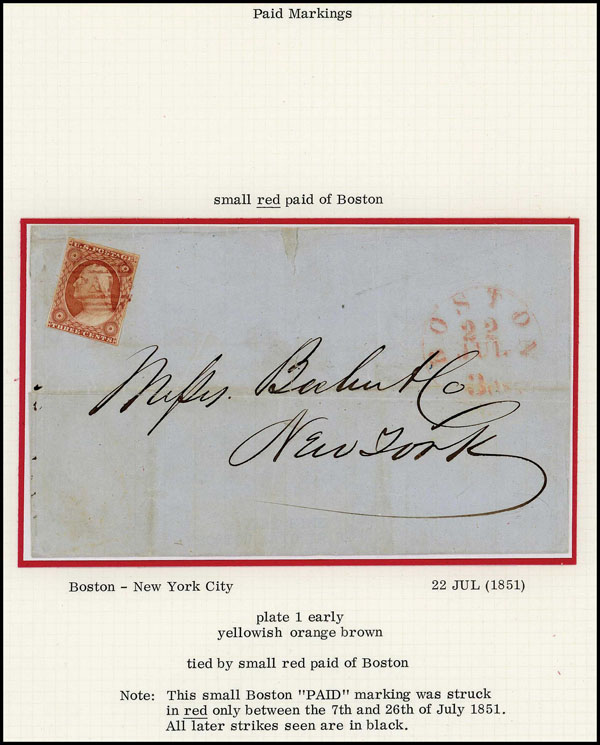 Paid Markings
small red paid of Boston
U.S. POSTAGE
PAID
THREE CENTS
BOSTON
22
JUL
3cts
Messrs. & Co
New York
Boston - New York City 22 JUL (1851)
plate 1 early
yellowish orange brown
tied by small red paid of Boston
Note: This small Boston "PAID" marking was struck
in red only between the 7th and 26th of July 1851.
All later strikes seen are in black.